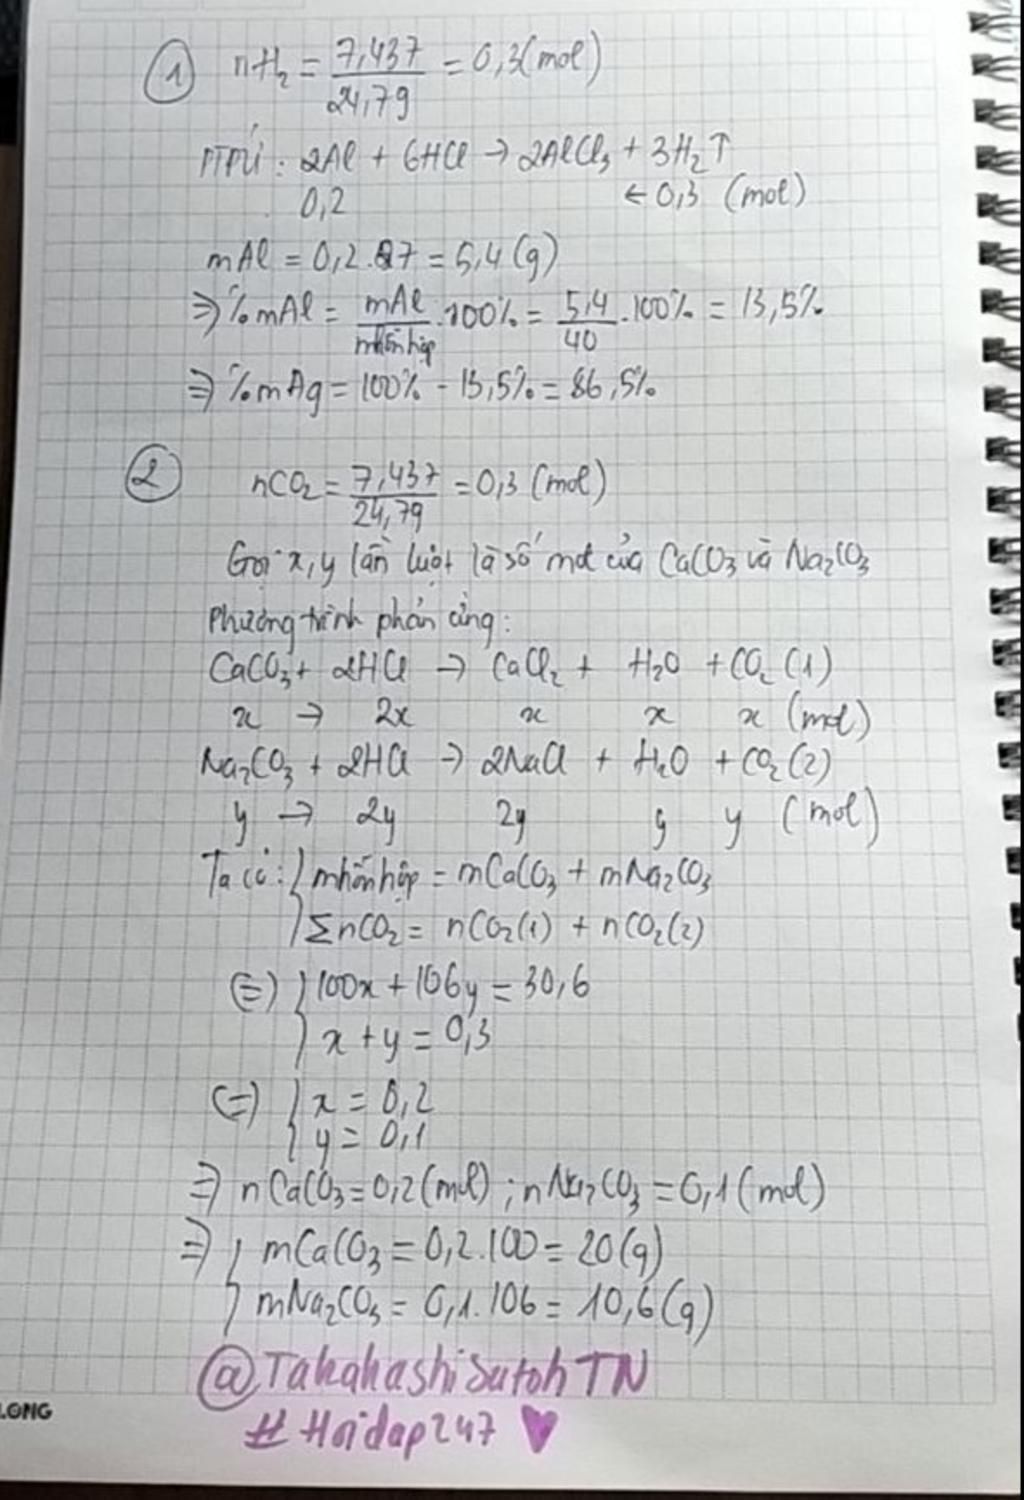 ① nH₂ = 7,437/24,79 = 0,3(mol)
PTPỨ: 2Al + 6HCl → 2AlCl₃ + 3H₂↑
0,2 ← 0,3 (mol)
mAl = 0,2.27 = 5,4(g)
⇒ %mAl = mAl/mhỗn hợp .100% = 5,4/40 .100% = 13,5%
⇒ %mAg = 100% - 13,5% = 86,5%
② nCO₂ = 7,437/24,79 = 0,3 (mol)
Gọi x, y lần lượt là số mol của CaCO₃ và Na₂CO₃
Phương trình phản ứng:
CaCO₃ + 2HCl → CaCl₂ + H₂O + CO₂ (1)
x → 2x x x x (mol)
Na₂CO₃ + 2HCl → 2NaCl + H₂O + CO₂ (2)
y → 2y 2y y y (mol)
Ta có: { mhỗn hợp = mCaCO₃ + mNa₂CO₃
ΣnCO₂ = nCO₂(1) + nCO₂(2)
(=) { 100x + 106y = 30,6
x + y = 0,3
(=) { x = 0,2
y = 0,1
⇒ nCaCO₃ = 0,2(mol) ; nNa₂CO₃ = 0,1(mol)
⇒ { mCaCO₃ = 0,2.100 = 20(g)
mNa₂CO₃ = 0,1.106 = 10,6(g)
@TakahashiSutohTN
LONG
#Hoidap247 ♥